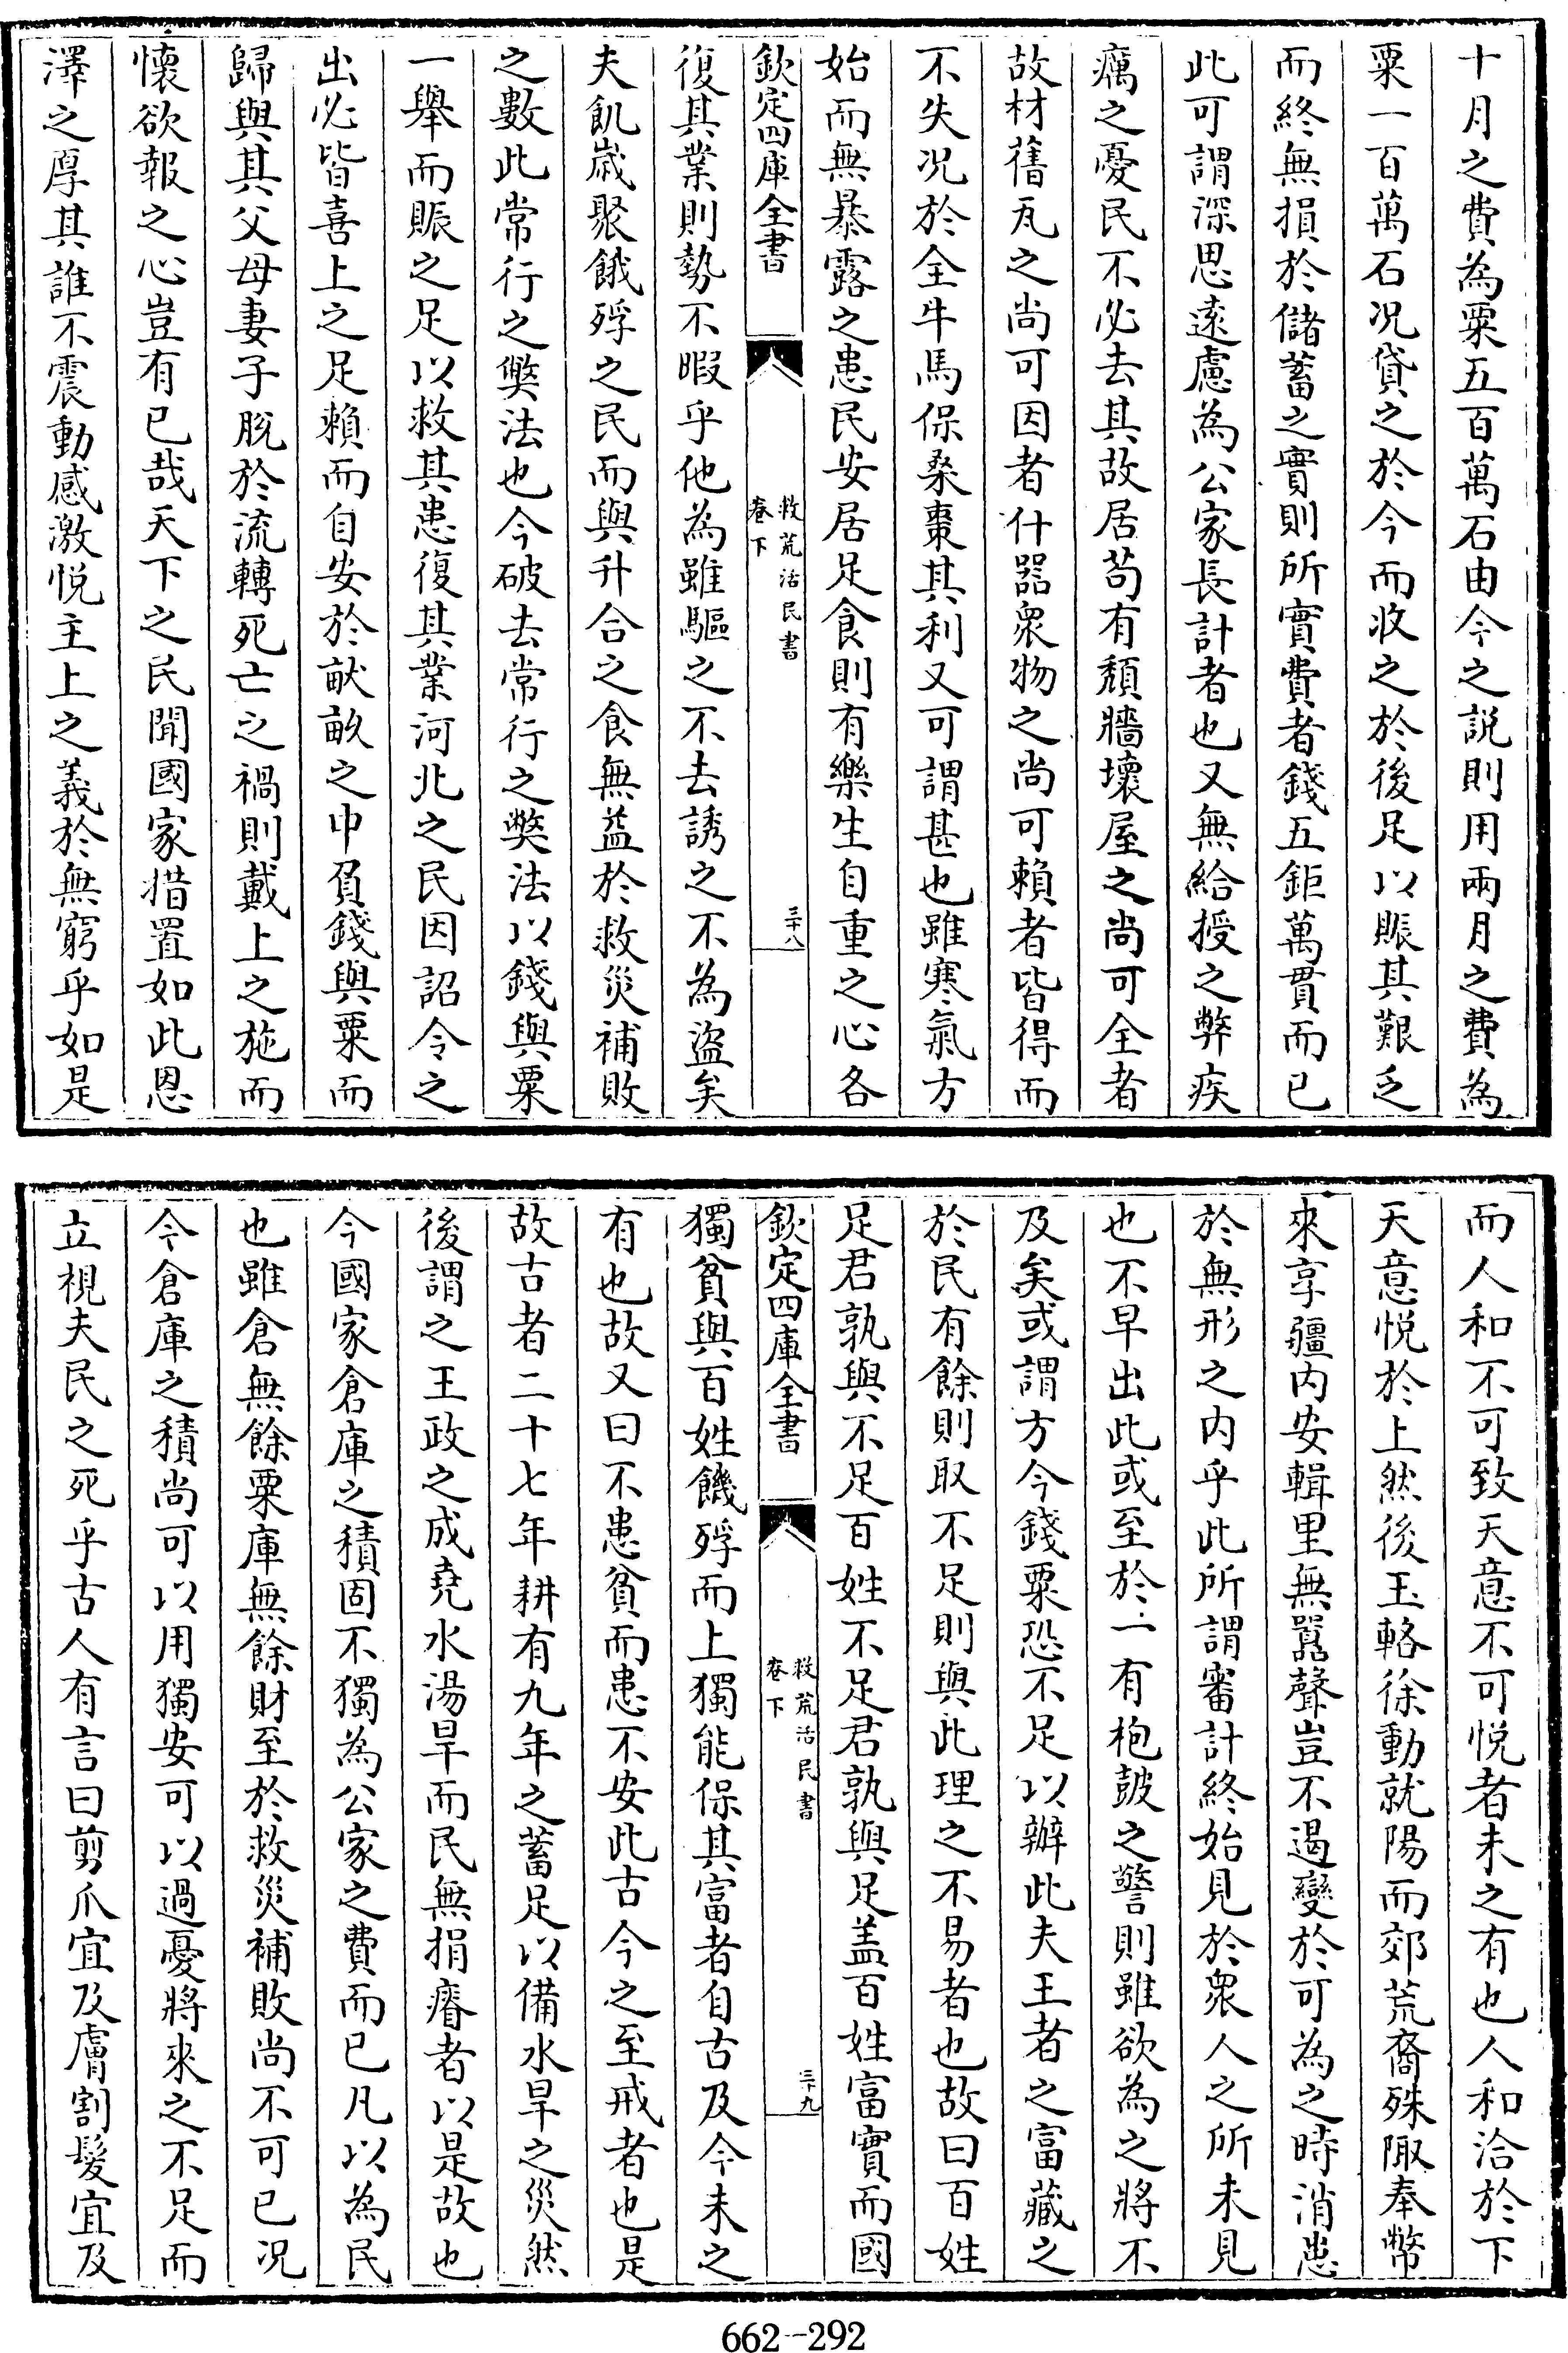 十月之費為粟五百萬石由今之説則用兩月之費為
粟一百萬石况貸之於今而收之於後足以賑其艱乏
而終無損於儲蓄之實則所實費者錢五鉅萬貫而已
此可謂深思遠慮為公家長計者也又無給授之弊疾
癘之憂民不必去其故居苟有頽牆壞屋之尚可全者
故材舊瓦之尚可因者什器衆物之尚可賴者皆得而
不失况於全牛馬保桑棗其利又可謂甚也雖寒氣方
始而無暴露之患民安居足食則有樂生自重之心各
欽定四庫全書
救荒活民書
卷下
三十八
復其業則勢不暇乎他為雖驅之不去誘之不為盜矣
夫飢嵗聚餓殍之民而與升合之食無益於救災補敗
之數此常行之弊法也今破去常行之弊法以錢與粟
一舉而賑之足以救其患復其業河北之民因詔令之
出必皆喜上之足賴而自安於畎畝之中負錢與粟而
歸與其父母妻子脱於流轉死亡之禍則戴上之施而
懷欲報之心豈有已哉天下之民聞國家措置如此恩
澤之厚其誰不震動感激悦主上之義於無窮乎如是
而人和不可致天意不可悦者未之有也人和洽於下
天意悦於上然後玉輅徐動就陽而郊荒裔殊陬奉幣
來享疆内安輯里無囂聲豈不遏變於可為之時消患
於無形之内乎此所謂審計終始見於衆人之所未見
也不早出此或至於一有枹鼓之警則雖欲為之將不
及矣或謂方今錢粟恐不足以辦此夫王者之富藏之
於民有餘則取不足則與此理之不易者也故曰百姓
足君孰與不足百姓不足君孰與足盖百姓富實而國
欽定四庫全書
救荒活民書
卷下
三十九
獨貧與百姓饑殍而上獨能保其富者自古及今未之
有也故又曰不患貧而患不安此古今之至戒者也是
故古者二十七年耕有九年之蓄足以備水旱之災然
後謂之王政之成堯水湯旱而民無捐瘠者以是故也
今國家倉庫之積固不獨為公家之費而已凡以為民
也雖倉無餘粟庫無餘財至於救災補敗尚不可已况
今倉庫之積尚可以用獨安可以過憂將來之不足而
立視夫民之死乎古人有言曰剪爪宜及膚割髮宜及
662-292